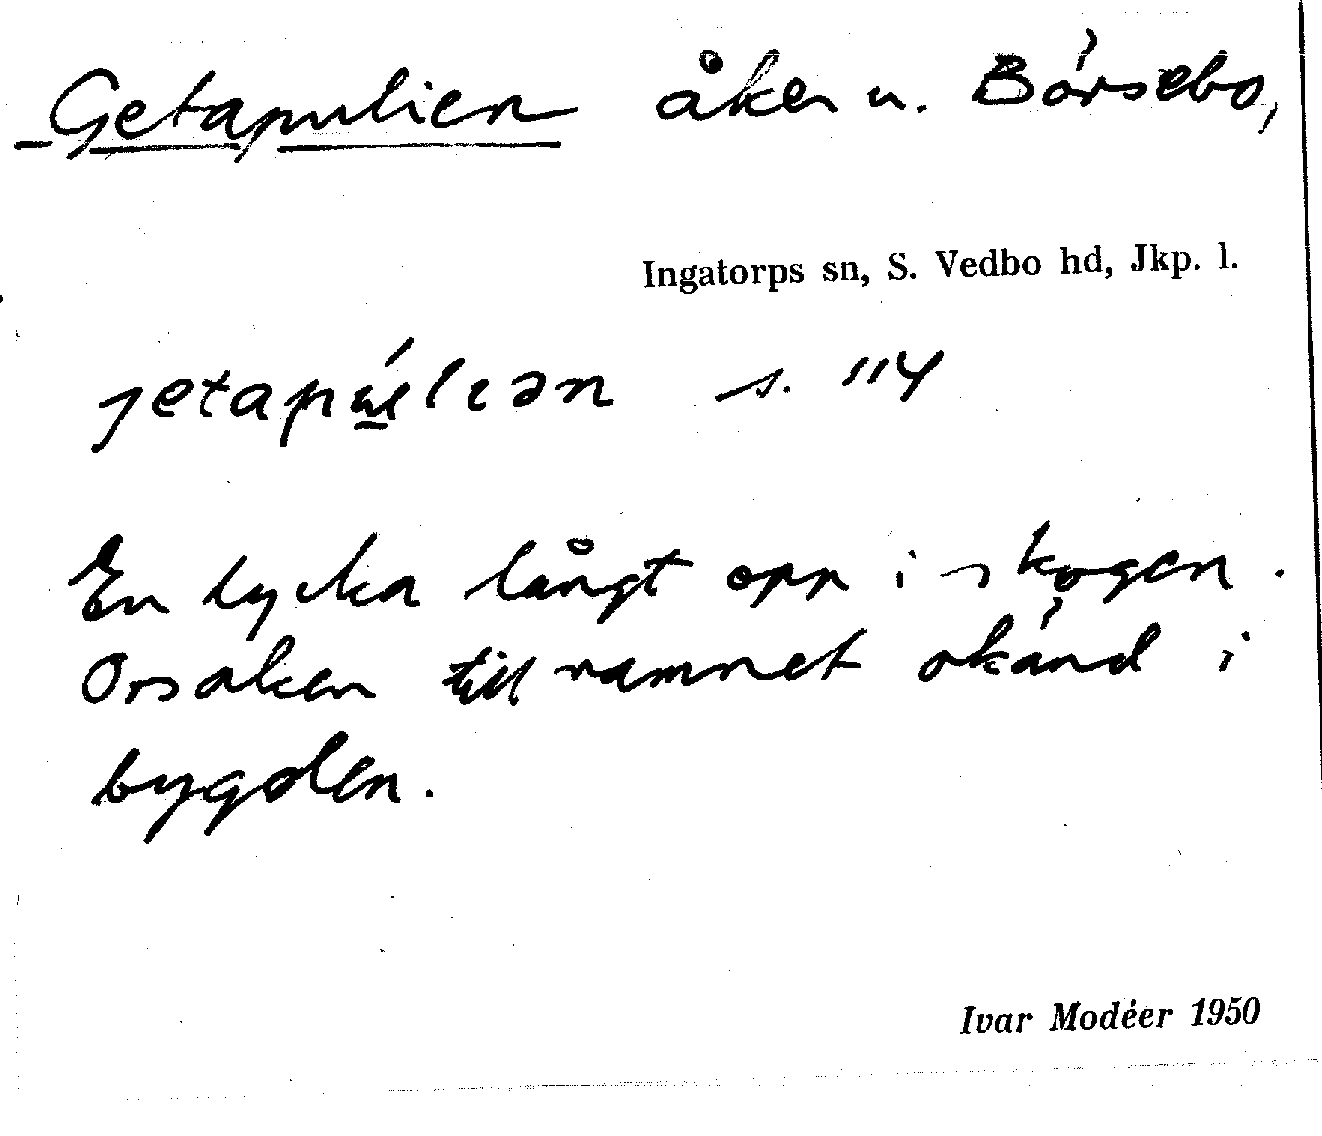 Getapulien åker u. Börsebo,
Ingatorps sn, S. Vedbo hd, Jkp. l.
s. 114
En lycka långt opp i skogen.
Orsaken till namnet okänd i
bygden.
Ivar Modéer 1950